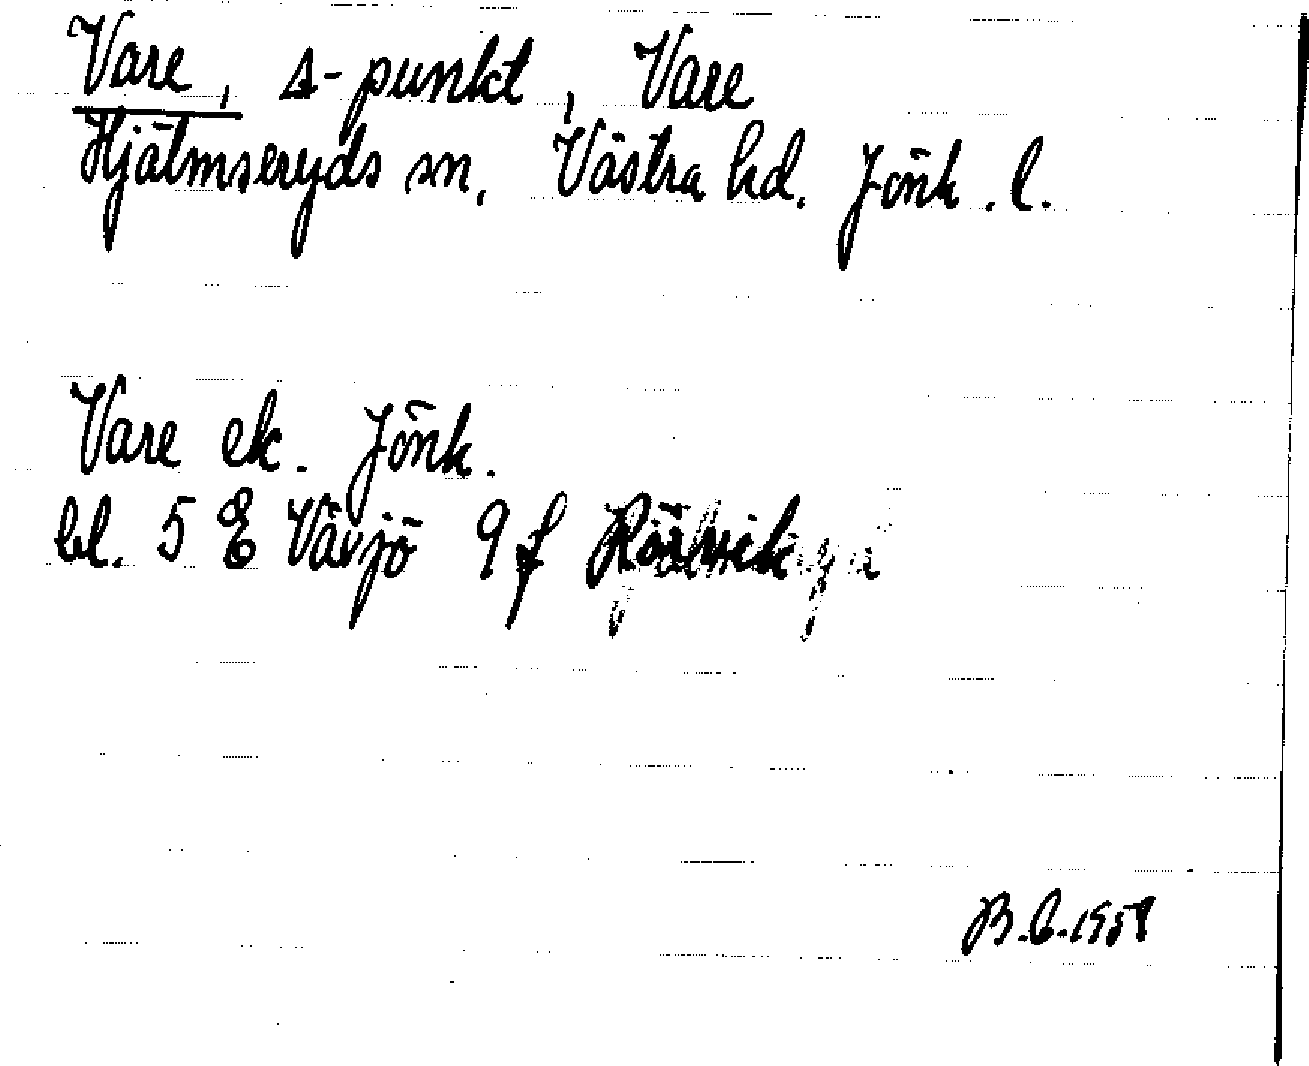 Vare, Δ-punkt, Vare
Hjälmseryds sn. Västra hd. Jönk. l.
Vare ek. Jönk.
bl. 5 E Växjö 9 f